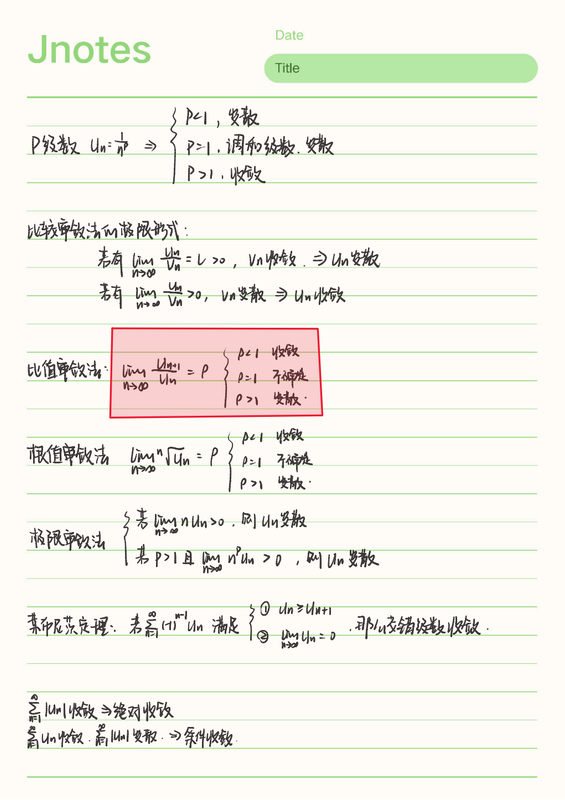 Jnotes
Date
Title
P级数 Un=1/n^p ⇒ { P<1, 发散
P=1, 调和级数. 发散
P>1, 收敛
比较审敛法的极限形式:
若有 lim n→∞ Un/Vn = L >0, Vn收敛. ⇒ Un发散
若有 lim n→∞ Un/Vn >0, Vn发散 ⇒ Un收敛
比值审敛法: lim n→∞ Un+1/Un = ρ { ρ<1 收敛
ρ=1 不确定
ρ>1 发散.
根值审敛法 lim n→∞ n√Un = ρ { ρ<1 收敛
ρ=1 不确定
ρ>1 发散.
极限审敛法 { 若 lim n→∞ nUn>0. 则Un发散
若 P>1 且 lim n→∞ n^p Un >0, 则Un发散
莱布尼茨定理: 若 ∑ n=1 ∞ (-1)^n-1 Un 满足 { ① Un≥Un+1
② lim n→∞ Un=0 . 那么交错级数收敛.
∑ n=1 ∞ |Un|收敛 ⇒ 绝对收敛
∑ n=1 ∞ Un收敛. ∑ n=1 ∞ |Un|发散. ⇒ 条件收敛.